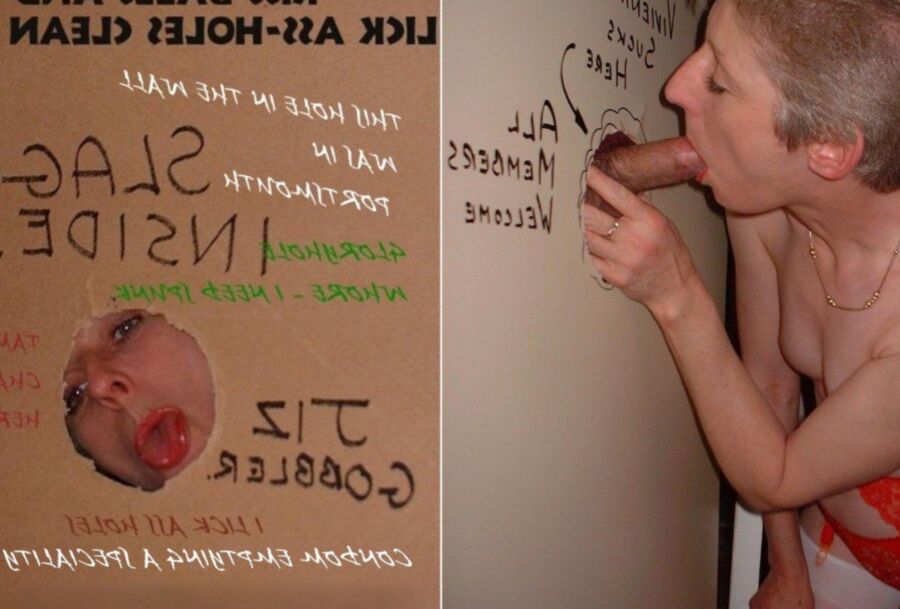 LICK ASS-HOLES CLEAN
THIS HOLE IN THE WALL
WAS IN
PORTSMOUTH
SLAG
INSIDE
GLORYHOLE
WHORE - I NEED SPUNK
JIZ
GOBBLER.
I LICK ASS HOLES
CONDOM EMPTYING A SPECIALITY
SUCKS
HERE
ALL
MEMBERS
WELCOME